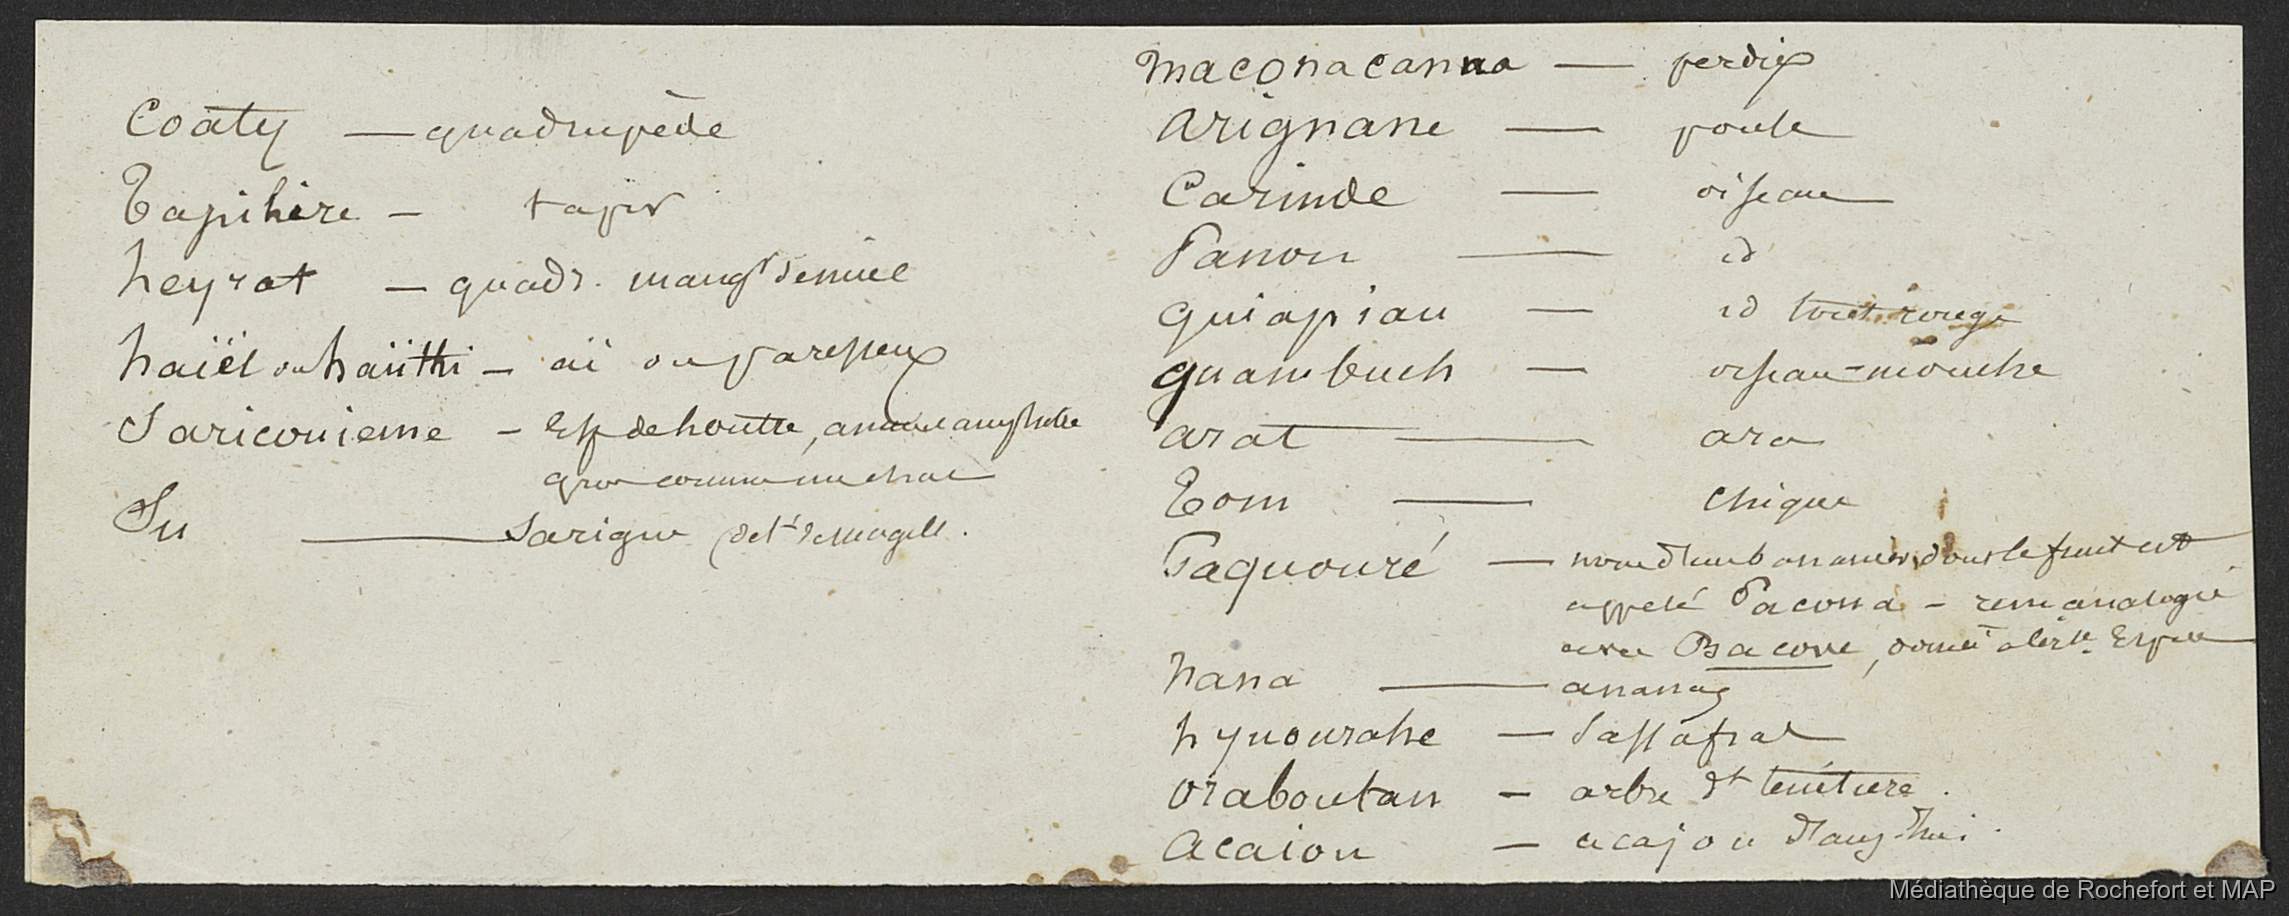 Coaty — quadrupède
Tapihire — tapir
heyrat — quadr. mangt de miel
haiël ou haüthi — aï ou paresseux
Saricouieme — Esp de houtte, 
gros comme un chat
Su — Sarigue (dét. de Magell.
maconacanna — perdix
arignane — poule
Carinde — oiseau
Panou — id
quiapian — id tout rouge
guambuch — oiseau-mouche
arat — ara
Tom — Chique
Paquouré — nom d'un bananier, dont le fruit est
appelé Pacona — analogie
avec Bacove, donné Espece
hana — ananas
hynourahe — Sassafras
oraboutan — arbre dt teinture.
Acaiou — acajou d'auj'hui.
Médiathèque de Rochefort et MAP